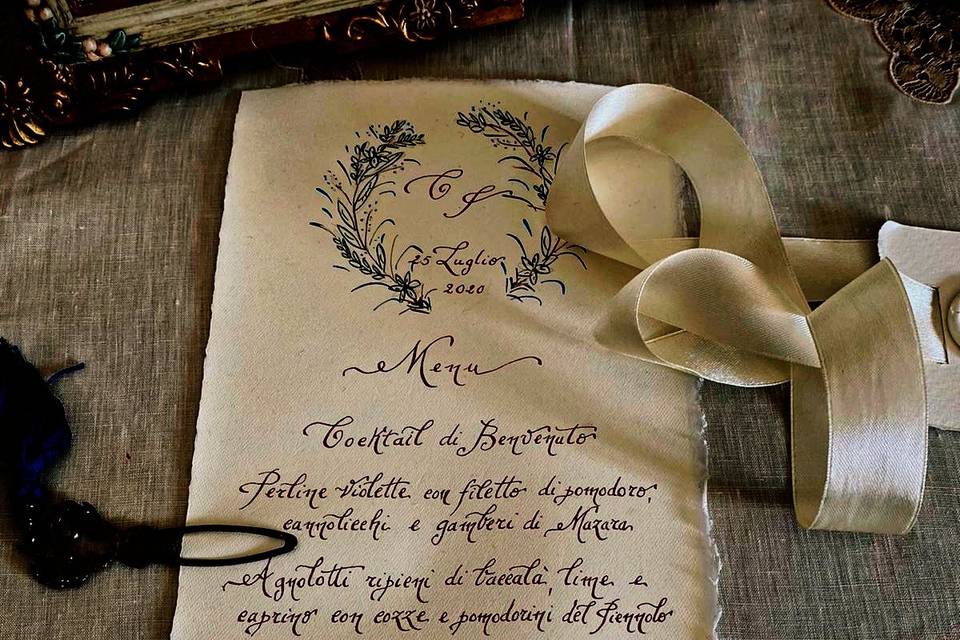 C F
25 Luglio
2020
Menu
Cocktail di Benvenuto
Perline violette con filetto di pomodoro,
cannolicchi e gamberi di Mazara
Agnolotti ripieni di baccalà, lime e
caprino con cozze e pomodorini del Piennolo